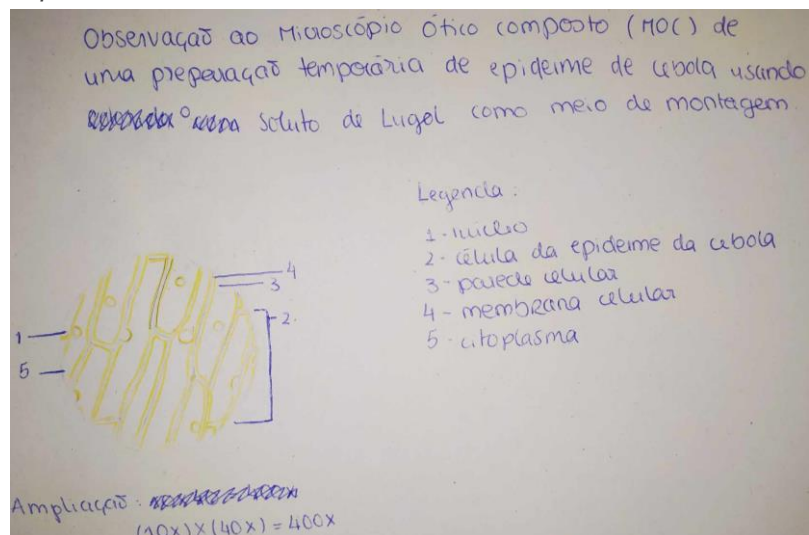 Observação ao Microscópio Ótico composto (MOC) de
uma preparação temporária de epiderme de cebola usando
soluto de Lugol como meio de montagem.
Legenda:
1 - núcleo
2 - célula da epiderme da cebola
3 - parede celular
4 - membrana celular
5 - citoplasma
4
3
2
1
5
Ampliação:
(10x)x(40x) = 400x